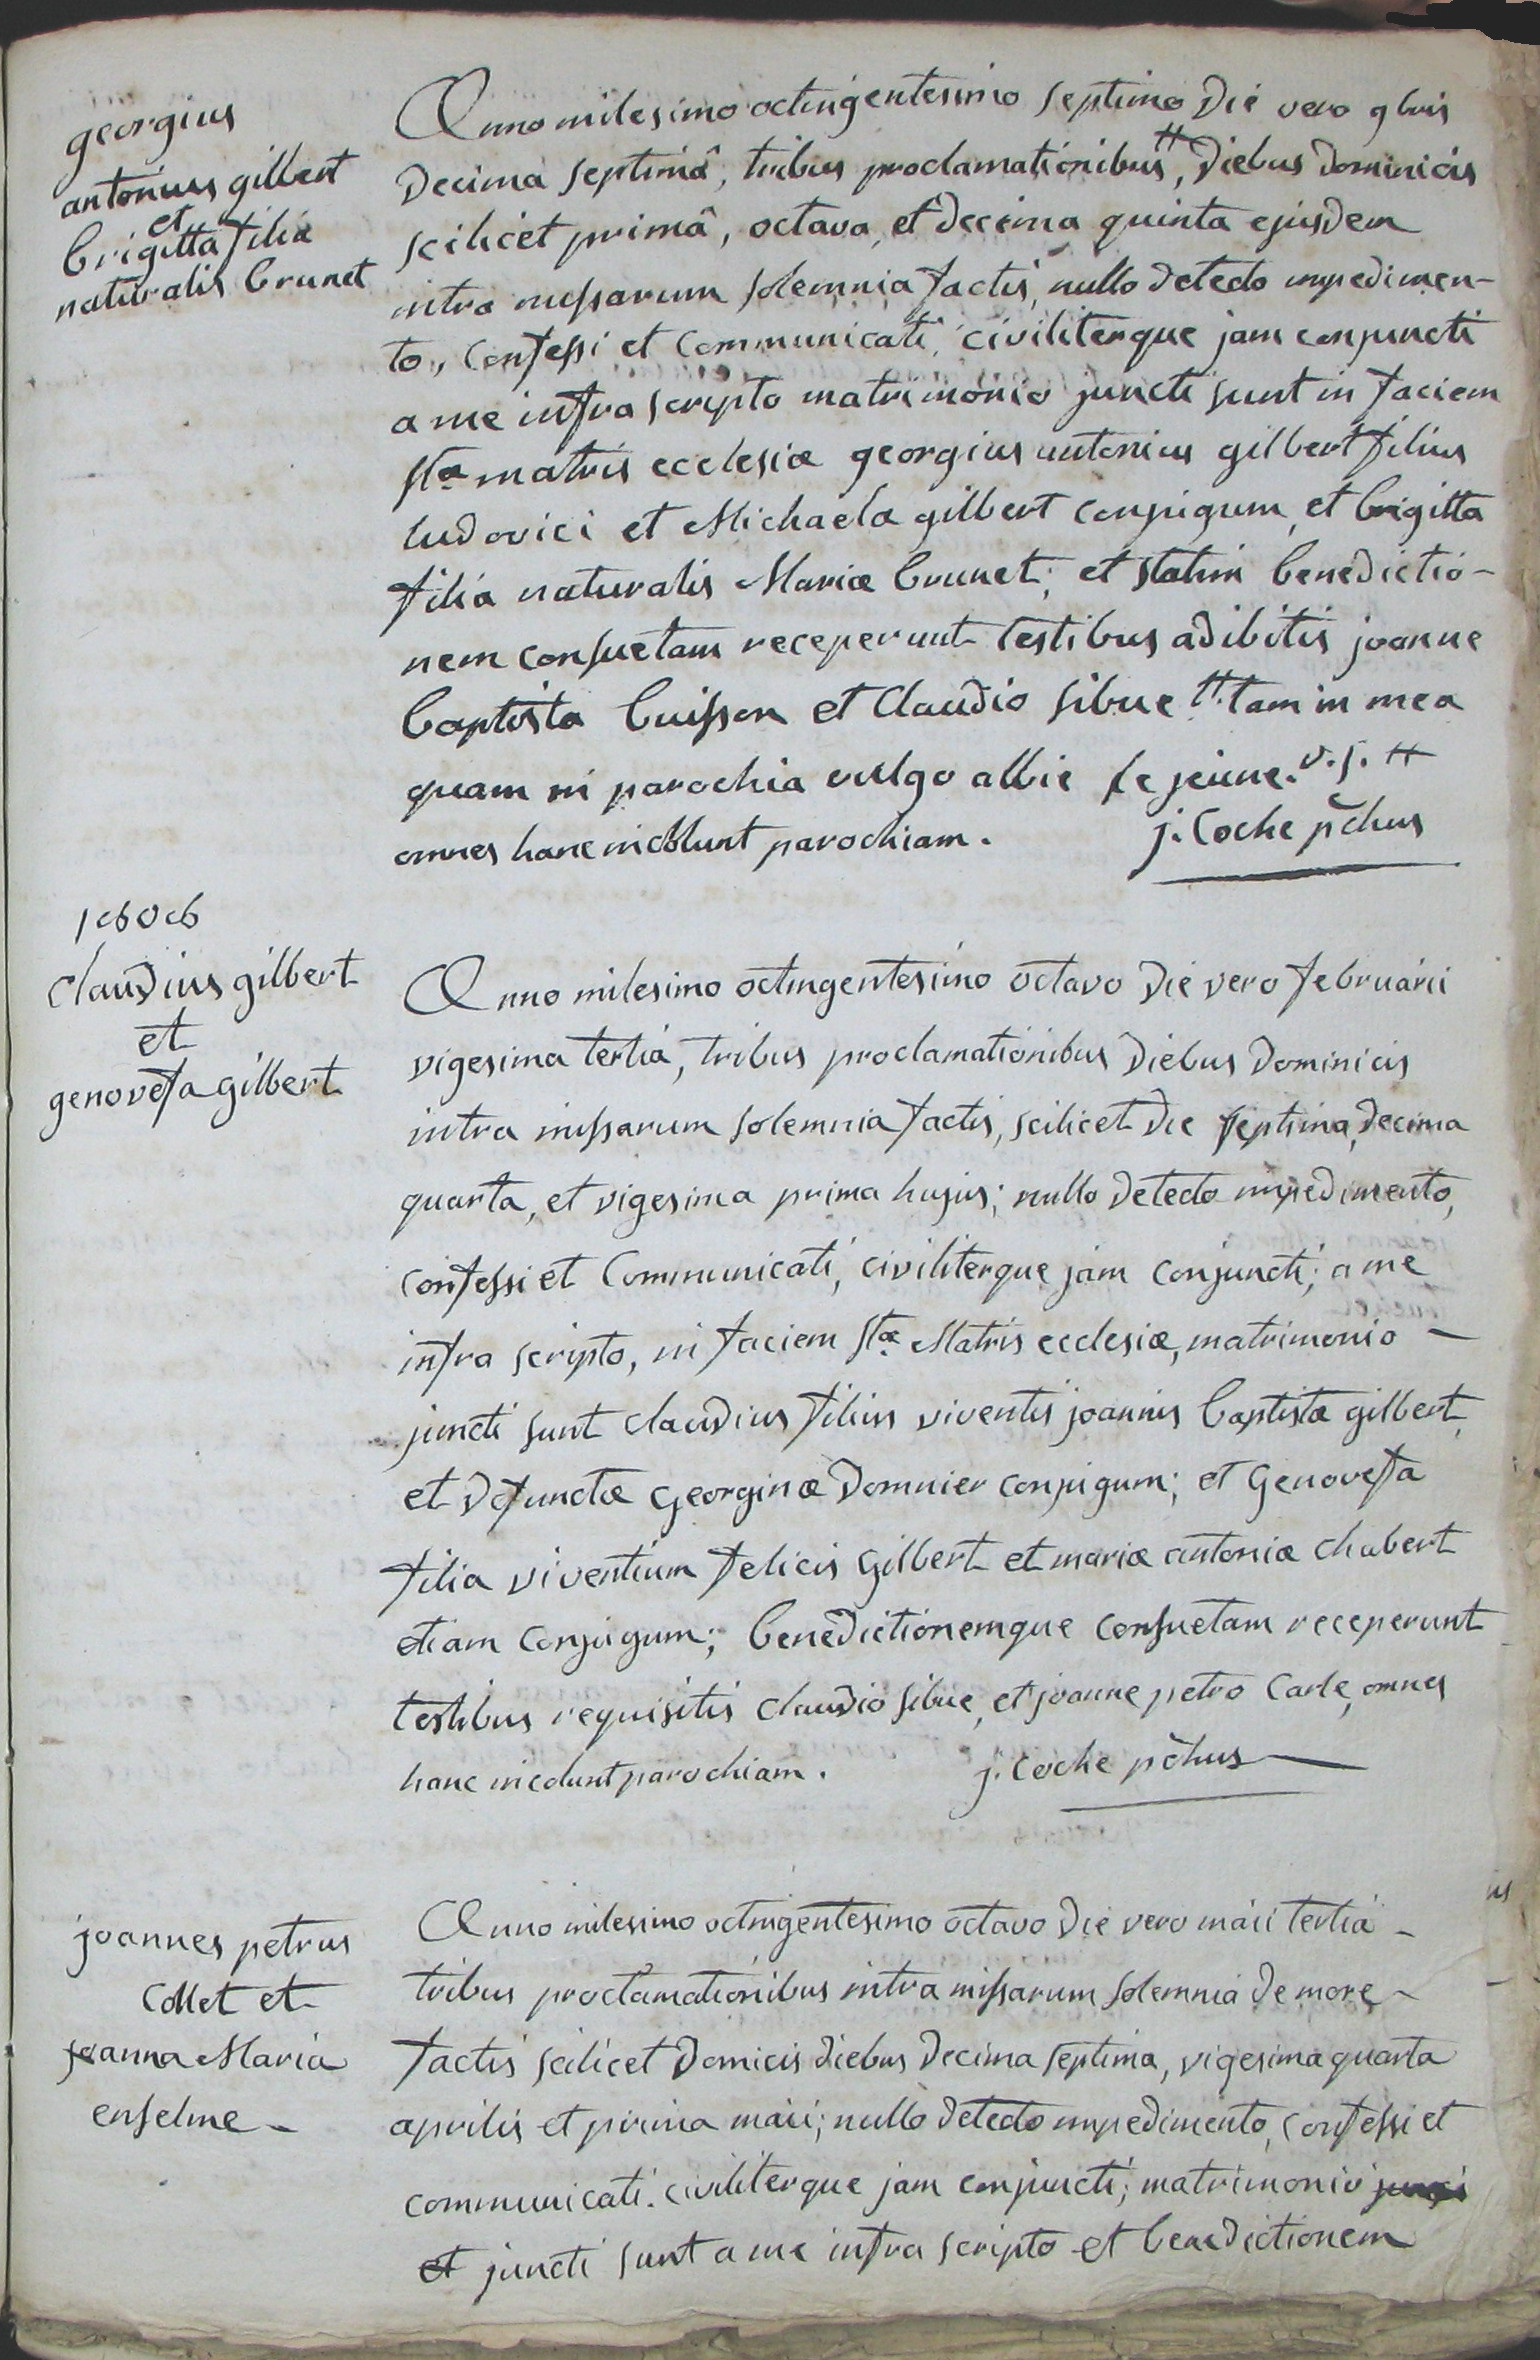 georgius
antonius gilbert
et
brigitta filia
naturalis brunet
Anno milesimo octingentesimo septimo die vero 9bris
decima septimâ, tribus proclamationibus ╫, diebus dominicis
scilicet primâ, octava, et decima quinta ejusdem
intra missarum solemnia factis, nullo detecto impedimen-
to, confessi et communicati, civiliterque jam conjuncti
a me infra scripto matrimonio juncti sunt in faciem
stæ matris ecclesiæ georgius antonius gilbert filius
ludovici et Michaela gilbert conjugum, et brigitta
filia naturalis Mariæ brunet; et statim benedictio-
nem consuetam receperunt testibus adibitis joanne
baptista buisson et Claudio sibue ╫ tam in mea
quam in parochia vulgo albie le jeune. v. s. ╫
omnes hanc incolunt parochiam. j. Coche pchus
1808
Claudius gilbert
et
genovefa gilbert
Anno milesimo octingentesimo octavo die vero februarii
vigesima tertia, tribus proclamationibus diebus dominicis
intra missarum solemnia factis, scilicet die septima, decima
quarta, et vigesima prima hujus; nullo detecto impedimento,
confessi et Communicati, civiliterque jam conjuncti; a me
infra scripto, in faciem stæ Matris ecclesiæ, matrimonio -
juncti sunt claudius filius viventis joannis baptista gilbert,
et defunctæ georginæ domnier conjugum; et Genovefa
filia viventium felicis Gilbert et mariæ antoniæ chabert
etiam conjugum; benedictionemque consuetam receperunt
testibus requisitis claudio sibue, et joanne petro Carle, omnes
hanc incolunt parochiam. j. Coche pchus
joannes petrus
Collet et
joanna Maria
enselme -
Anno milesimo octingentesimo octavo die vero maii tertia -
tribus proclamationibus intra missarum solemnia de more -
factis scilicet domicis diebus decima septima, vigesima quarta
aprilis et prima maii; nullo detecto impedimento, confessi et
communicati. civiliterque jam conjuncti; matrimonio
et juncti sunt a me infra scripto et benedictionem